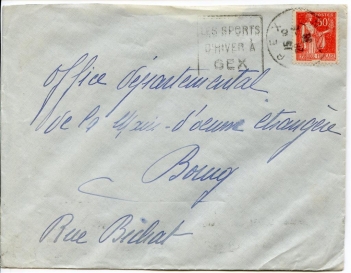 LES SPORTS
D'HIVER À
GEX
50c
Office départemental
de la Main-d'œuvre étrangère
Bourg
Rue Bichat